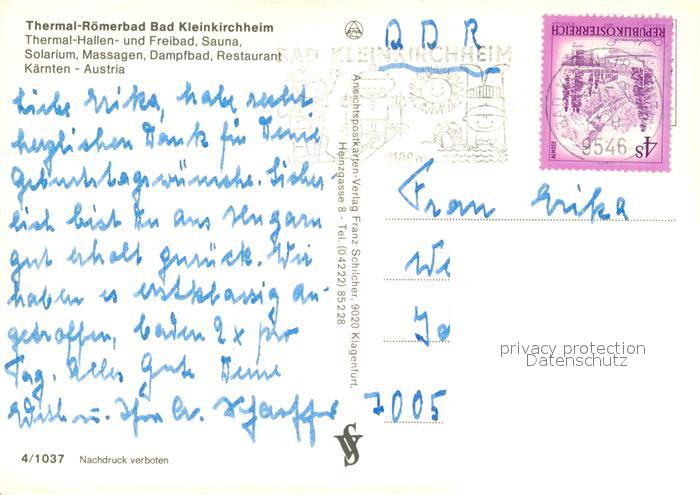 Thermal-Römerbad Bad Kleinkirchheim
Thermal-Hallen- und Freibad, Sauna,
Solarium, Massagen, Dampfbad, Restaurant
Kärnten - Austria
Liebe Erika, habe recht
herzlichen Dank für Deine
Geburtstagswünsche. Sicher-
lich bist Du aus Ungarn
gut erholt zurück. Wir
haben es erstklassig an-
getroffen, baden 2 x pro
Tag. Alles Gute Deine
Edith u.
4/1037 Nachdruck verboten
Ansichtspostkarten-Verlag Franz Schilcher, 9020 Klagenfurt,
Heinzgasse 8 - Tel. (04222) 85228
DDR
BAD KLEINKIRCHHEIM
REPUBLIK ÖSTERREICH
ALMSEE
4S
9546
Frau Erika
We
Jo
7005
privacy protection
Datenschutz